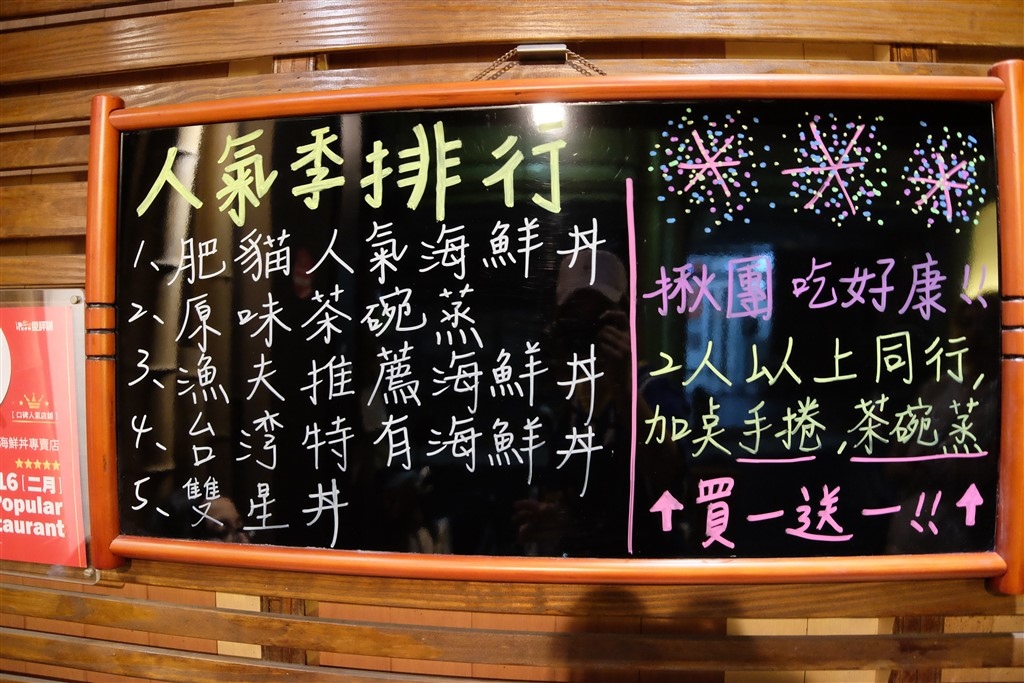 人氣季排行
1、肥貓人氣海鮮丼
2、原味茶碗蒸
3、漁夫推薦海鮮丼
4、台湾特有海鮮丼
5、雙星丼
揪團吃好康!!
2人以上同行,
加桌手捲,茶碗蒸
↑買一送一!!↑
愛評網
[口碑人氣店舖]
海鮮丼專賣店
16[二月]
Popular
taurant